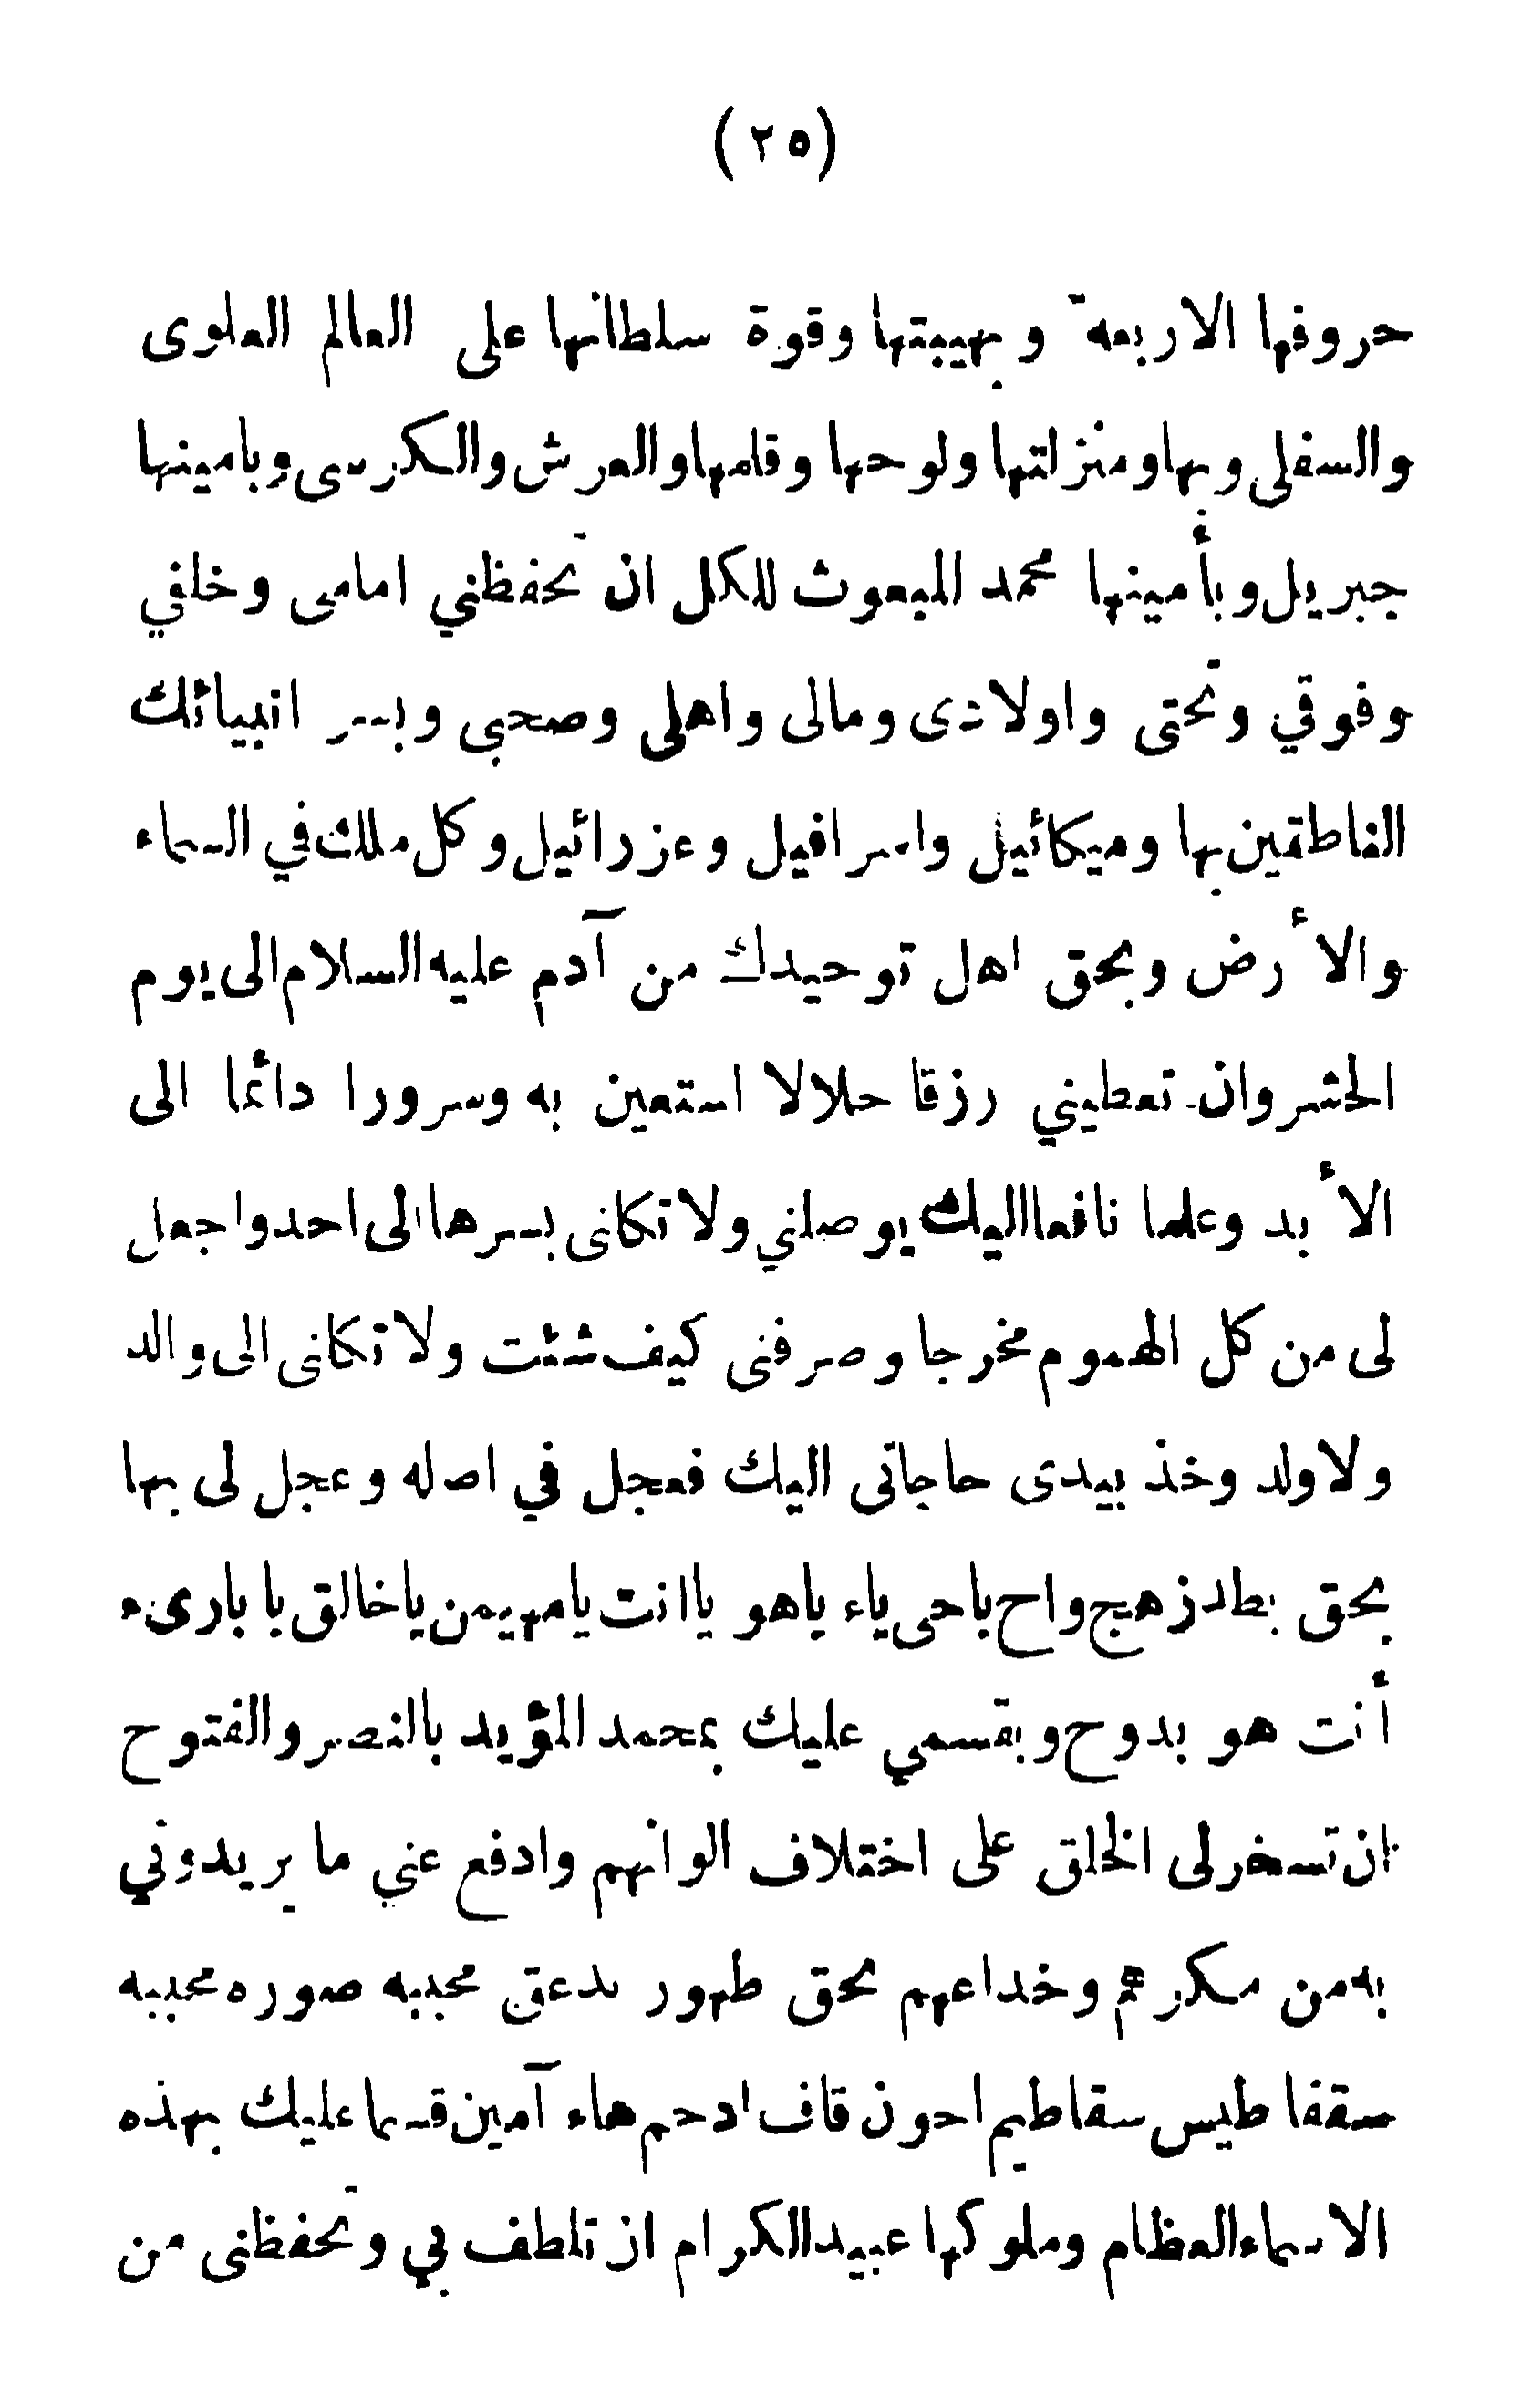 (٢٥)
حروفها الاربعة وبهيبتها وقوة سلطانها على العالم العلوى
والسفلى وبهاو منزلتها ولوحها وقلمها والعرش والكرسى وبامينها
جبريل وبأمينها محمد المبعوث للكل ان تحفظني امامى وخلفي
وفوقي وتحتى واولادى ومالى واهلى وصحبي وبسر انبيائك
الناطقين بها وميكائيل واسرافيل وعزرائيل وكل ملك في السماء
والأرض وبحق اهل توحيدك من آدم عليه السلام الى يوم
الحشر وان تعطيني رزقا حلالا استعين به وسرورا دائما الى
الأبد وعلما نافعا اليك يوصلني ولا تكلنى بسرها الى احد واجعل
لى من كل الهموم مخرجا وصرفنى كيف شئت ولا تكلنى الى والد
ولا ولد وخذ بيدى حاجاتى اليك فعجل في اصله وعجل لى بها
بحق بطد زهج واح ياحى ياء ياهو ياانت يامهيمن ياخالق يا بارىء
أنت هو بدوح وبقسمي عليك بمحمد المؤيد بالنصر والفتوح
ان تسخر لى الخلق على اختلاف الوانهم وادفع عني ما يريدوني
به من مكرهم وخداعهم بحق طهور بدعق محببه صوره محببه
سقفا طيس سقاطيم احون قاف ادحم هاء آمين قسما عليك بهذه
الاسماء العظام وملوكها عبيد الكرام ان تلطف بي وتحفظنى من